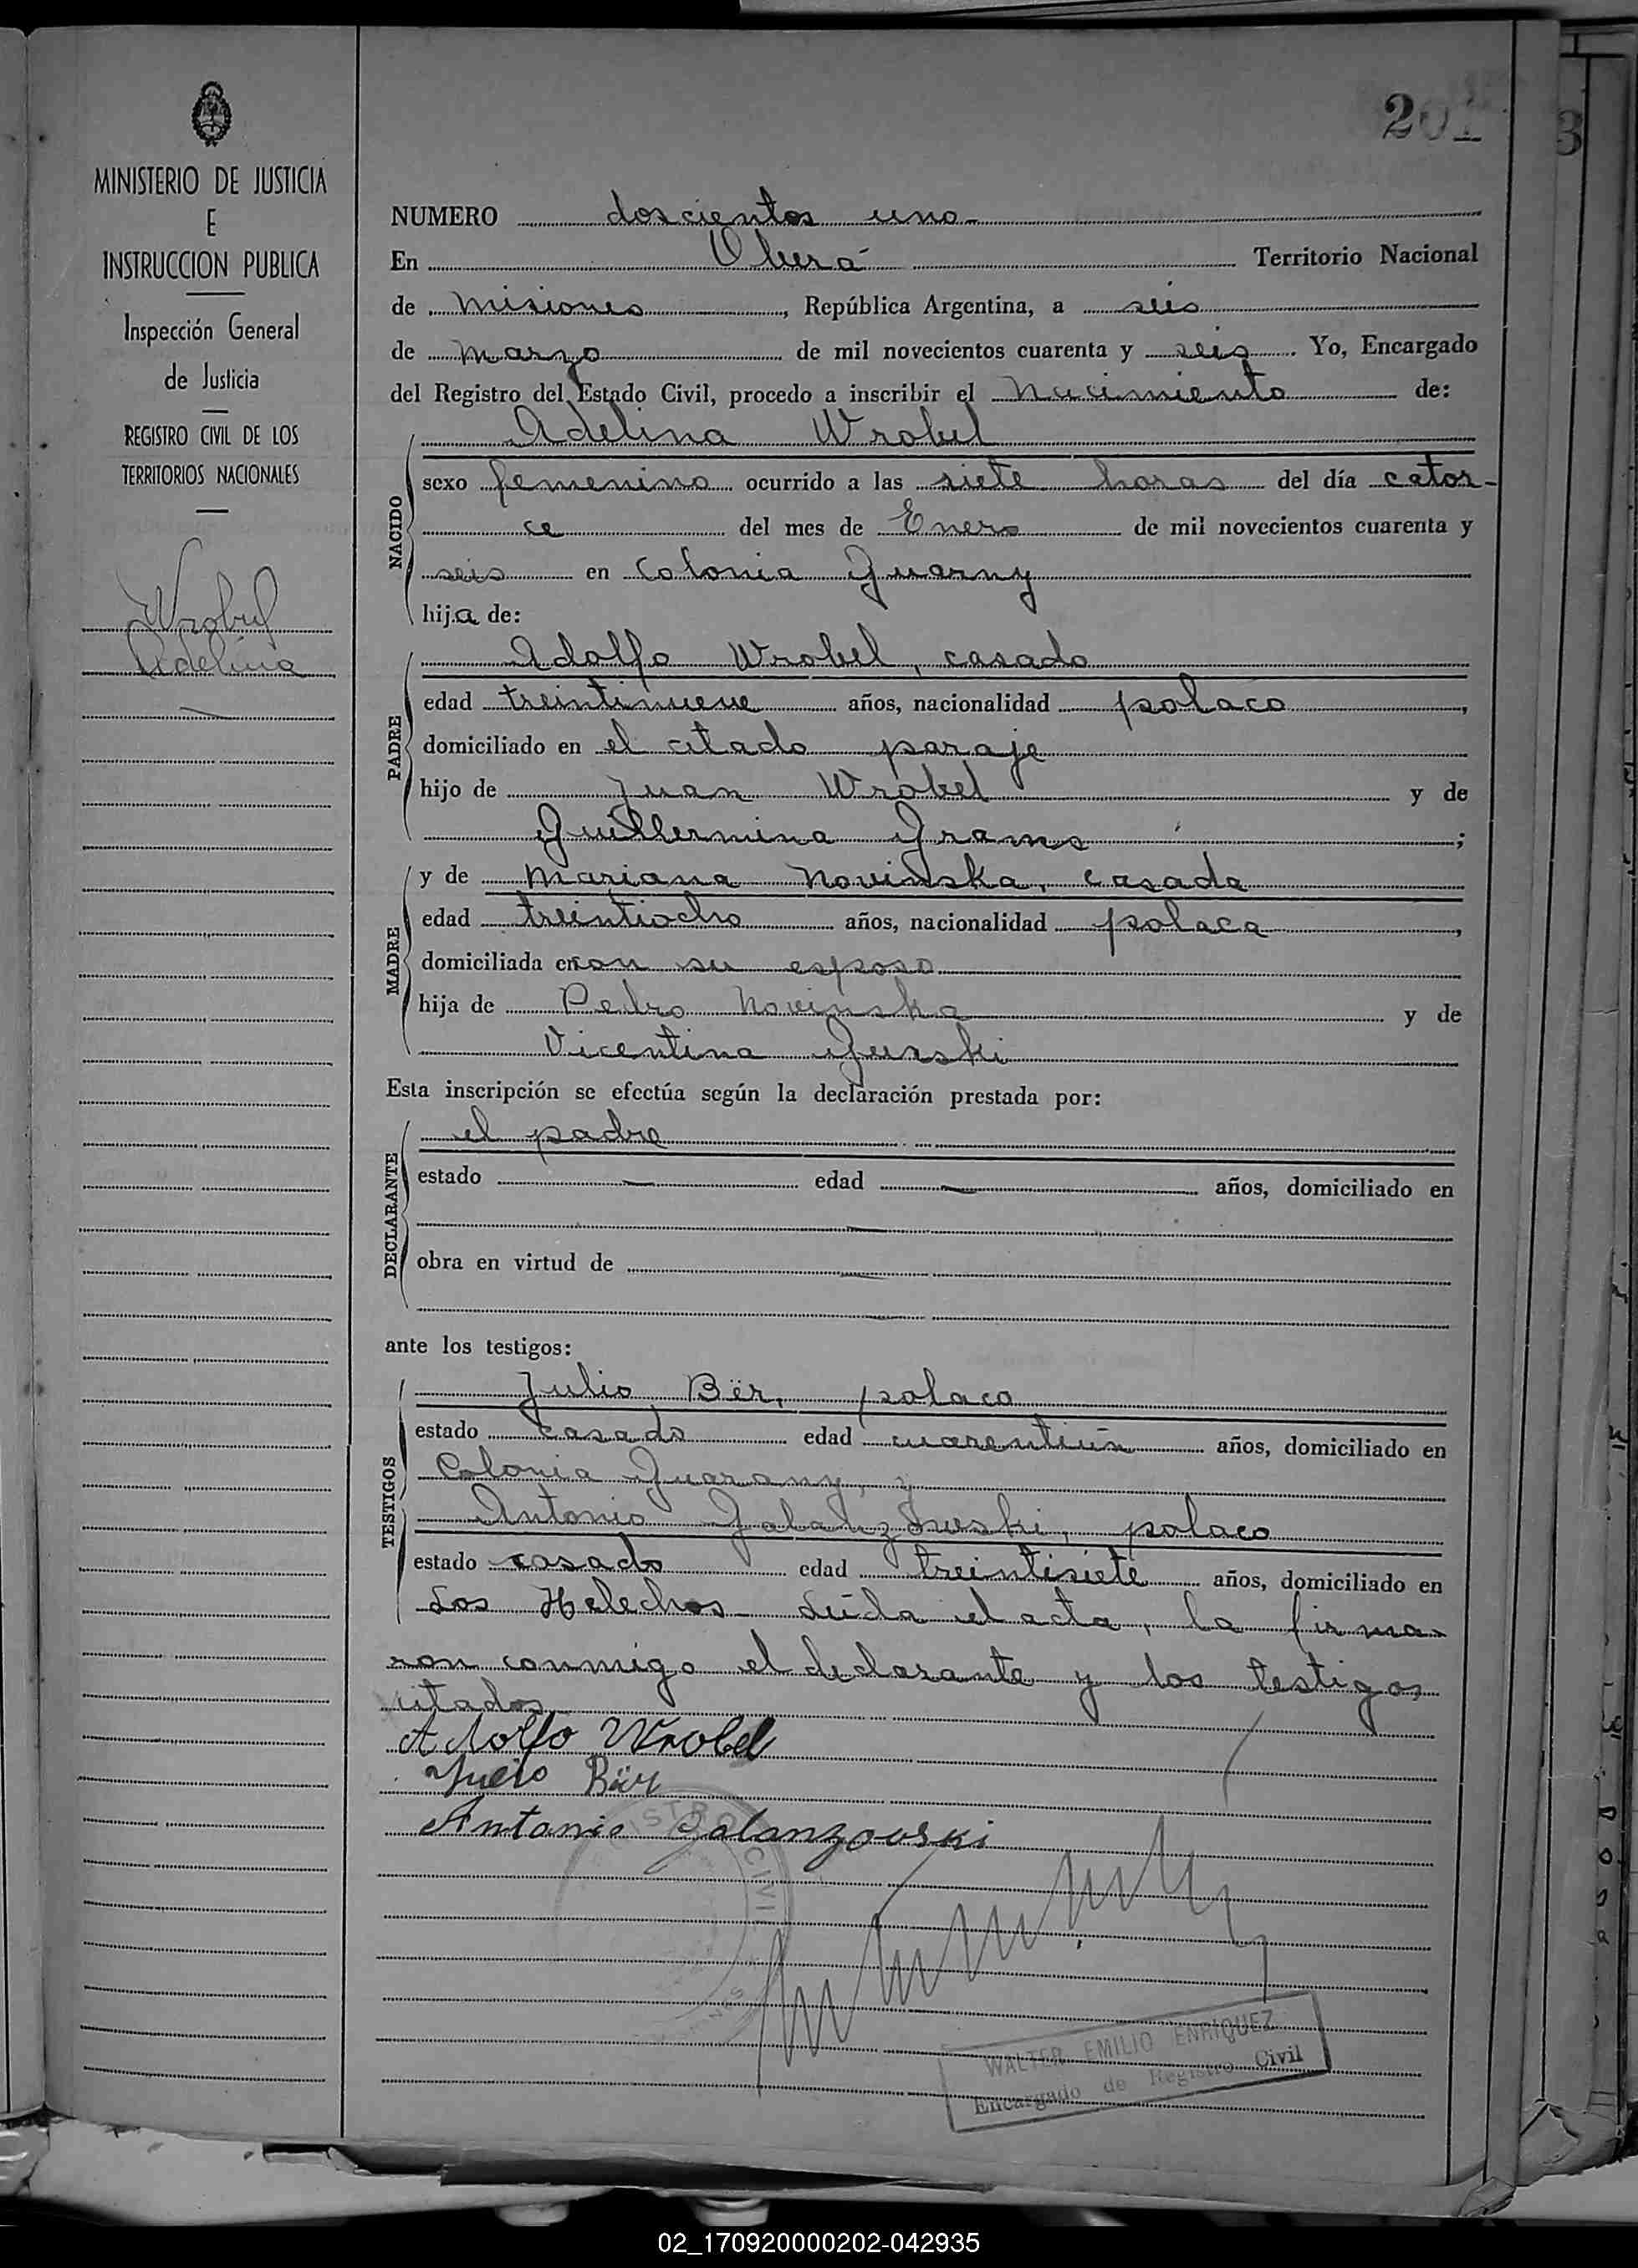 201
MINISTERIO DE JUSTICIA
E
INSTRUCCION PUBLICA
Inspección General
de Justicia
REGISTRO CIVIL DE LOS
TERRITORIOS NACIONALES
Wrobel
Adelina
NUMERO doscientos uno
En Oberá Territorio Nacional
de Misiones, República Argentina, a seis
de Marzo de mil novecientos cuarenta y seis. Yo, Encargado
del Registro del Estado Civil, procedo a inscribir el Nacimiento de:
NACIDO
Adelina Wrobel
sexo femenino ocurrido a las siete horas del día cator-
ce del mes de Enero de mil novecientos cuarenta y
seis en Colonia Guarny
hija de:
PADRE
Adolfo Wrobel, casado
edad treintinueve años, nacionalidad polaco,
domiciliado en el citado paraje
hijo de Juan Wrobel y de
Guillermina Grams;
MADRE
y de Mariana Novinska, casada
edad treintiocho años, nacionalidad polaca,
domiciliada con su esposo
hija de Pedro Novinska y de
Vicentina Gurski
Esta inscripción se efectúa según la declaración prestada por:
DECLARANTE
el padre
estado — edad — años, domiciliado en
—
obra en virtud de —
—
ante los testigos:
TESTIGOS
Julio Bër, polaco
estado casado edad cuarentiún años, domiciliado en
Colonia Guarany, y
Antonio polaco
estado casado edad treintisiete años, domiciliado en
Los Helechos Leída el acta, la firma-
ron conmigo el declarante y los testigos
citados
Adolfo Wrobel
Julio Bär
Antonio Galanzowski
REGISTRO CIVIL
WALTER EMILIO ENRIQUEZ
Encargado de Registro Civil
02_170920000202-042935